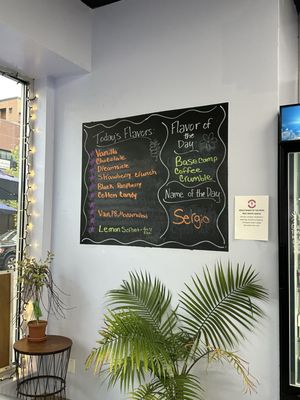 Today's Flavors:
Vanilla
Chocolate
Dreamsicle
Strawberry Crunch
Black Raspberry
Cotton Candy
Lemon Sorbet
Flavor of
the
Day
Basecamp
Coffee
Crumble
Name of the Day
Sergio